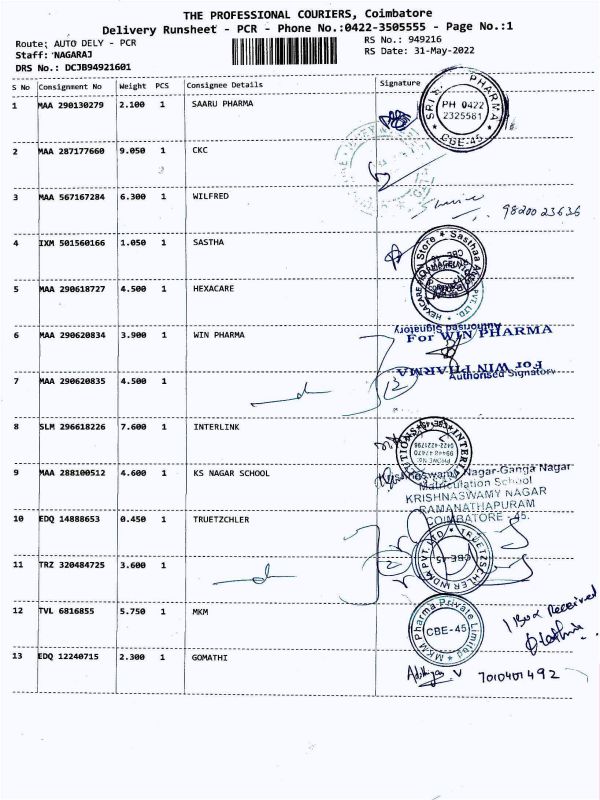 THE PROFESSIONAL COURIERS, Coimbatore
Delivery Runsheet - PCR - Phone No.:0422-3505555 - Page No.:1
Route: AUTO DELY - PCR
RS No.: 949216
Staff: NAGARAJ
RS Date: 31-May-2022
DRS No.: DCJB94921601
S No Consignment No Weight PCS Consignee Details Signature
1 MAA 290130279 2.100 1 SAARU PHARMA
SRI PHARMA
PH 0422
2325581
CBE-45
2 MAA 287177660 9.050 1 CKC
2
3 MAA 567167284 6.300 1 WILFRED
9820023636
4 IXM 501560166 1.050 1 SASTHA
Sasthaa
Store
5 MAA 290618727 4.500 1 HEXACARE
HEXACARE
PVT. LTD.
6 MAA 290620834 3.900 1 WIN PHARMA
Authorised Signatory
For WIN PHARMA
7 MAA 290620835 4.500 1
For WIN PHARMA
Authorised Signatory
2
8 SLM 296618226 7.600 1 INTERLINK
INTERLINK
PHONE NO.
0422-4221798
9 MAA 288100512 4.600 1 KS NAGAR SCHOOL
Krishnaswamy Nagar-Ganga Nagar
Matriculation School
KRISHNASWAMY NAGAR
RAMANATHAPURAM
COIMBATORE - 45.
10 EDQ 14888653 0.450 1 TRUETZCHLER
11 TRZ 320484725 3.600 1
2
TRUETZSCHLER INDIA PVT. LTD
CBE 45
12 TVL 6816855 5.750 1 MKM
MKM Pharma Private Limited
CBE-45
1 Box Received
13 EDQ 12240715 2.300 1 GOMATHI
V 7010401492